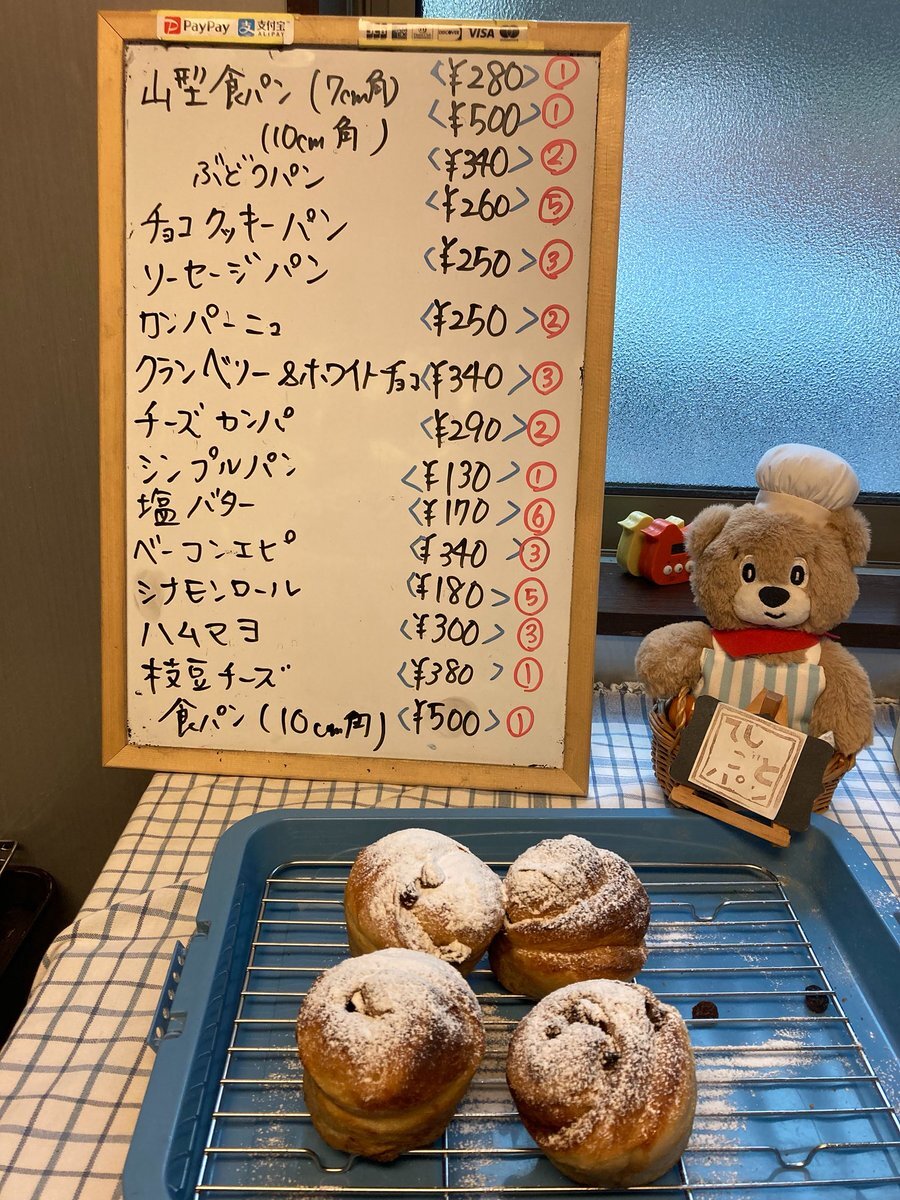 PayPay 支付宝 ALIPAY DISCOVER VISA
山型食パン (7cm角) <¥280> ①
(10cm角) <¥500> ①
ぶどうパン <¥340> ②
チョコクッキーパン <¥260> ⑤
ソーセージパン <¥250> ③
カンパーニュ <¥250> ②
クランベリー&ホワイトチョコ <¥340> ③
チーズカンパ <¥290> ②
シンプルパン <¥130> ①
塩バター <¥170> ⑥
ベーコンエピ <¥340> ③
シナモンロール <¥180> ⑤
ハムマヨ <¥300> ③
枝豆チーズ <¥380> ①
食パン (10cm角) <¥500> ①